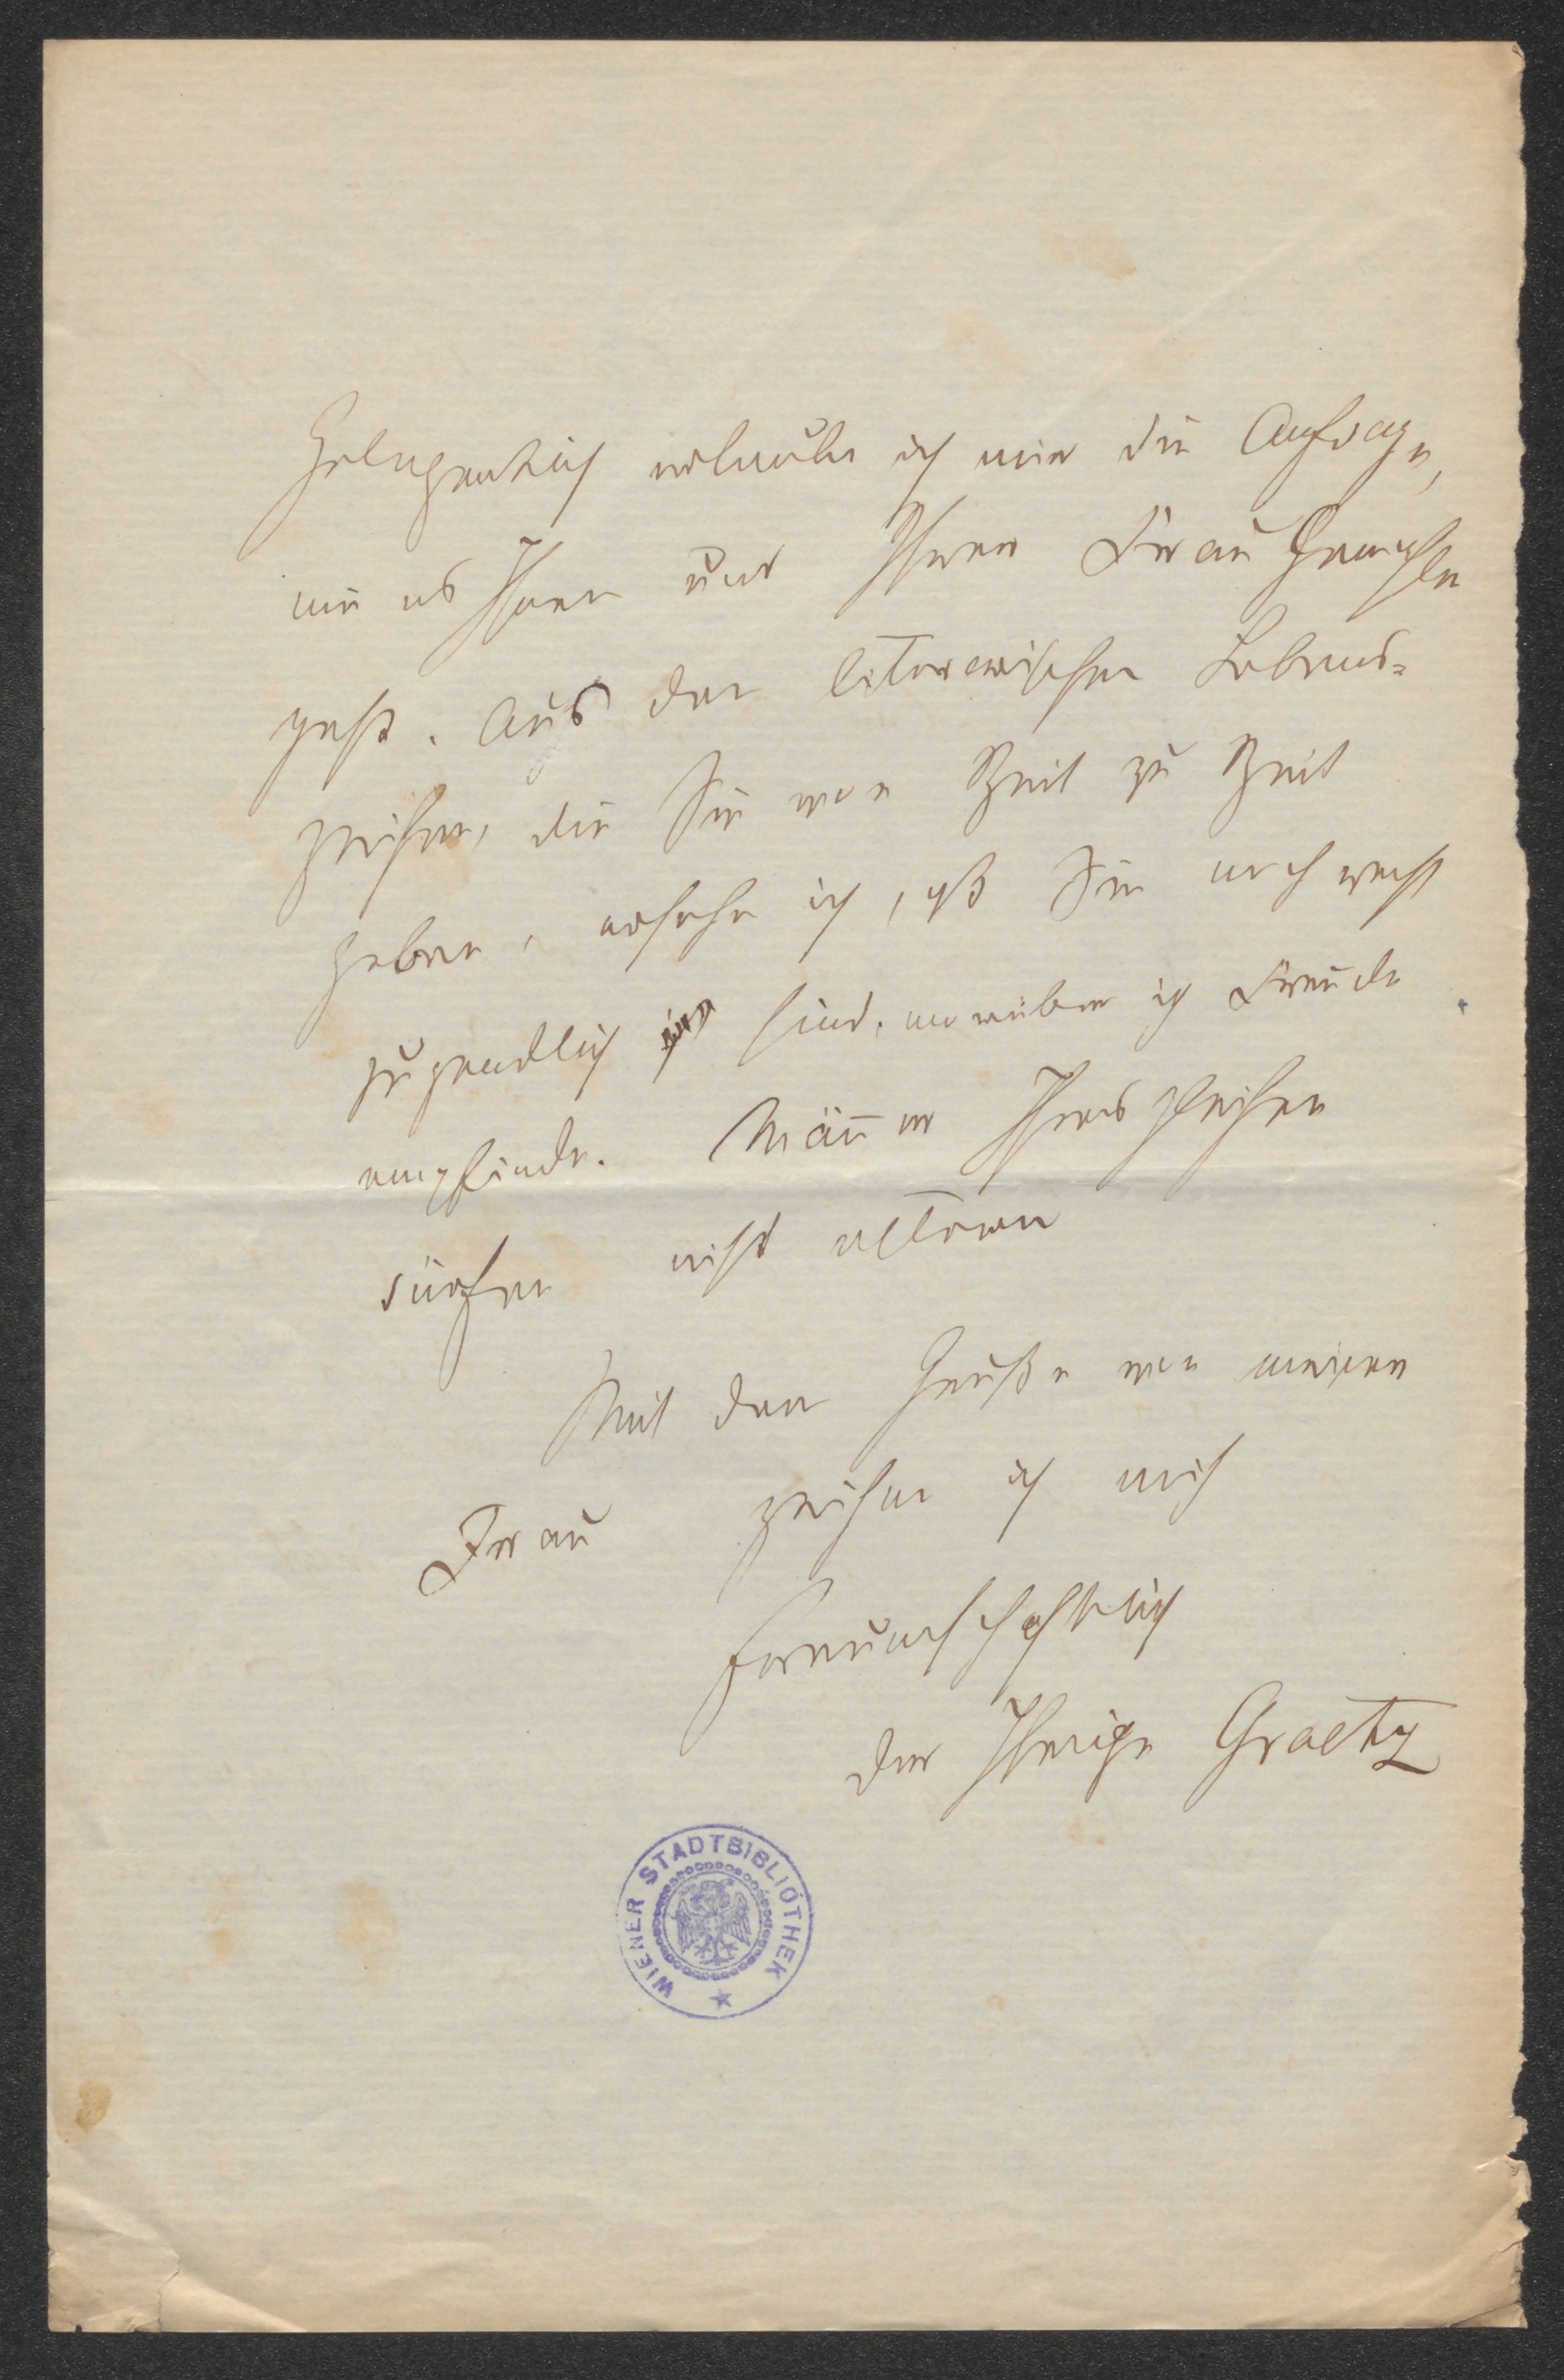 Gelegentlich erlaube ich mir die Anfrage,
wie es Ihnen und Ihrer Frau Gemahlin
geht. Aus den literarischen Lebens-
zeichen, die Sie von Zeit zu Zeit
geben, ersehe ich, dß Sie noch recht
jugendlich sind, worüber ich Freude
empfinde. Männer Ihresgleichen
dürfen nicht altern
Mit dem Gruße von meiner
Frau zeichne ich mich
freundschaftlich
der Ihrige Graetz
WIENER STADTBIBLIOTHEK